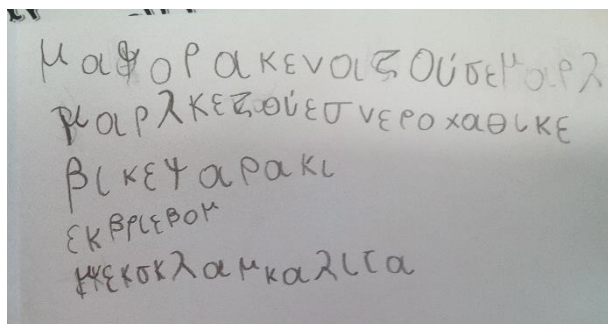 μαφορακεναιζούσεμαρλ
μαρλκεζούεσνεροχαθικε
βικεψαρακι
εκβριεβομ
μκεκσκλαμκαλιτα